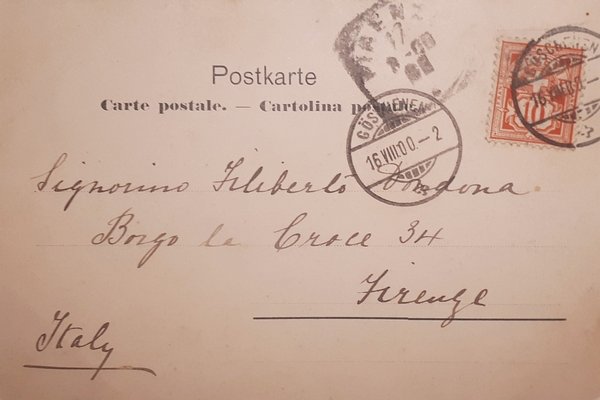 FIRENZE
17
Postkarte
Carte postale. — Cartolina
GÖSCHENEN
16.VIII.00.–2
GÖSCHENEN
16.VIII.00.
10
Signorino Filiberto Dondona
Borgo la Croce 34
Firenze
Italy